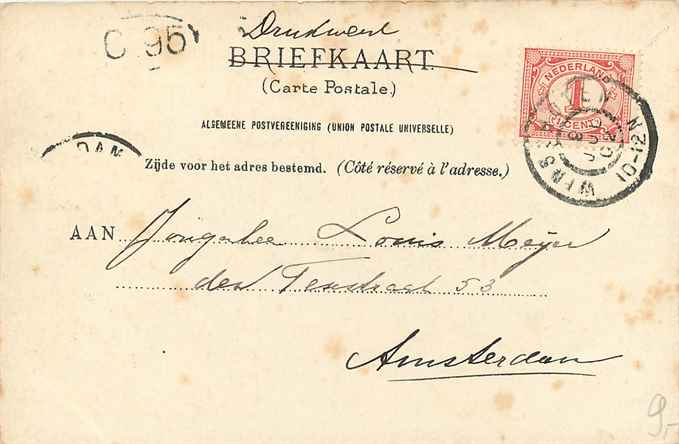 Drukwerk
C 95
BRIEFKAART.
(Carte Postale.)
ALGEMEENE POSTVEREENIGING (UNION POSTALE UNIVERSELLE)
Zijde voor het adres bestemd. (Côté réservé à l'adresse.)
NEDERLAND
1
CENT
10-12 N
DAM
AAN Jongeheer Louis Meijer
den Texstraat 53
Amsterdam
9,-